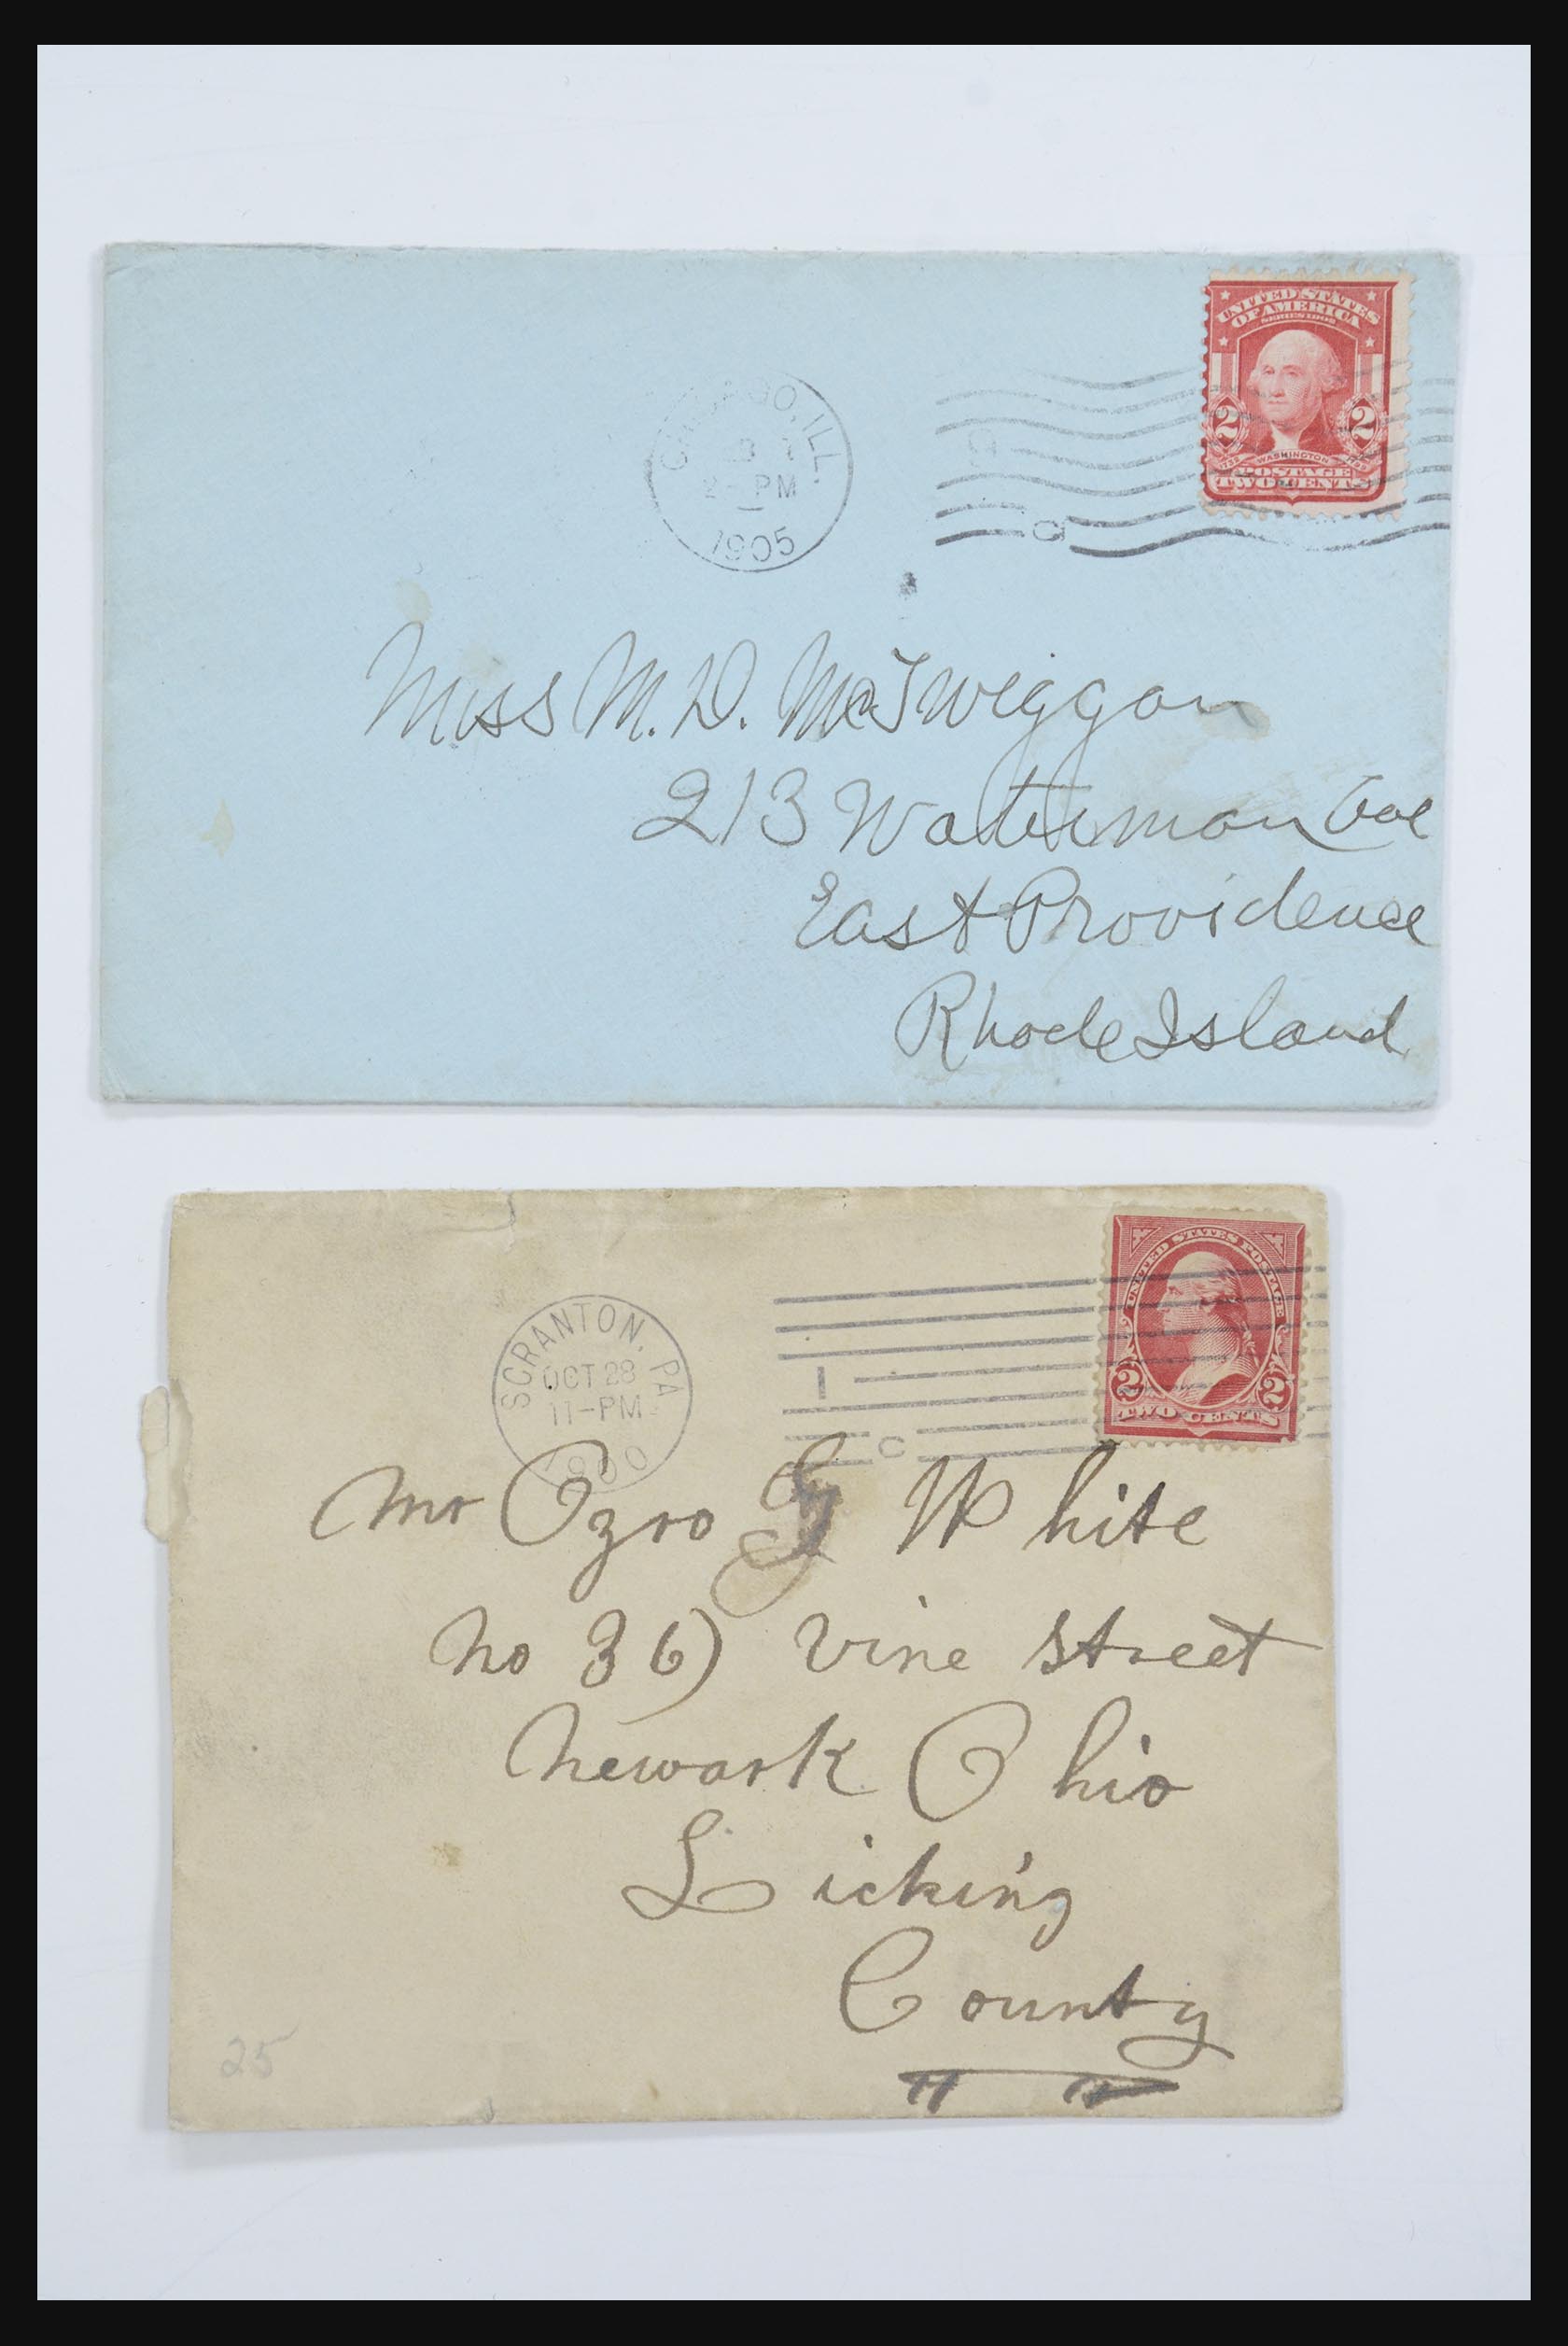 UNITED STATES
OF AMERICA
SERIES 1902
2 2
1732 WASHINGTON 1799
POSTAGE
TWO CENTS
CHICAGO, ILL.
PM
1905
C
Miss M. D. McTwiggan
213 Waterman Ave
East Providence
Rhode Island
UNITED STATES POSTAGE
2 2
TWO CENTS
SCRANTON, PA.
OCT 28
11-PM
1900
1
C
Mr Ozro G White
No 367 Vine Street
Newark Ohio
Licking
County
25